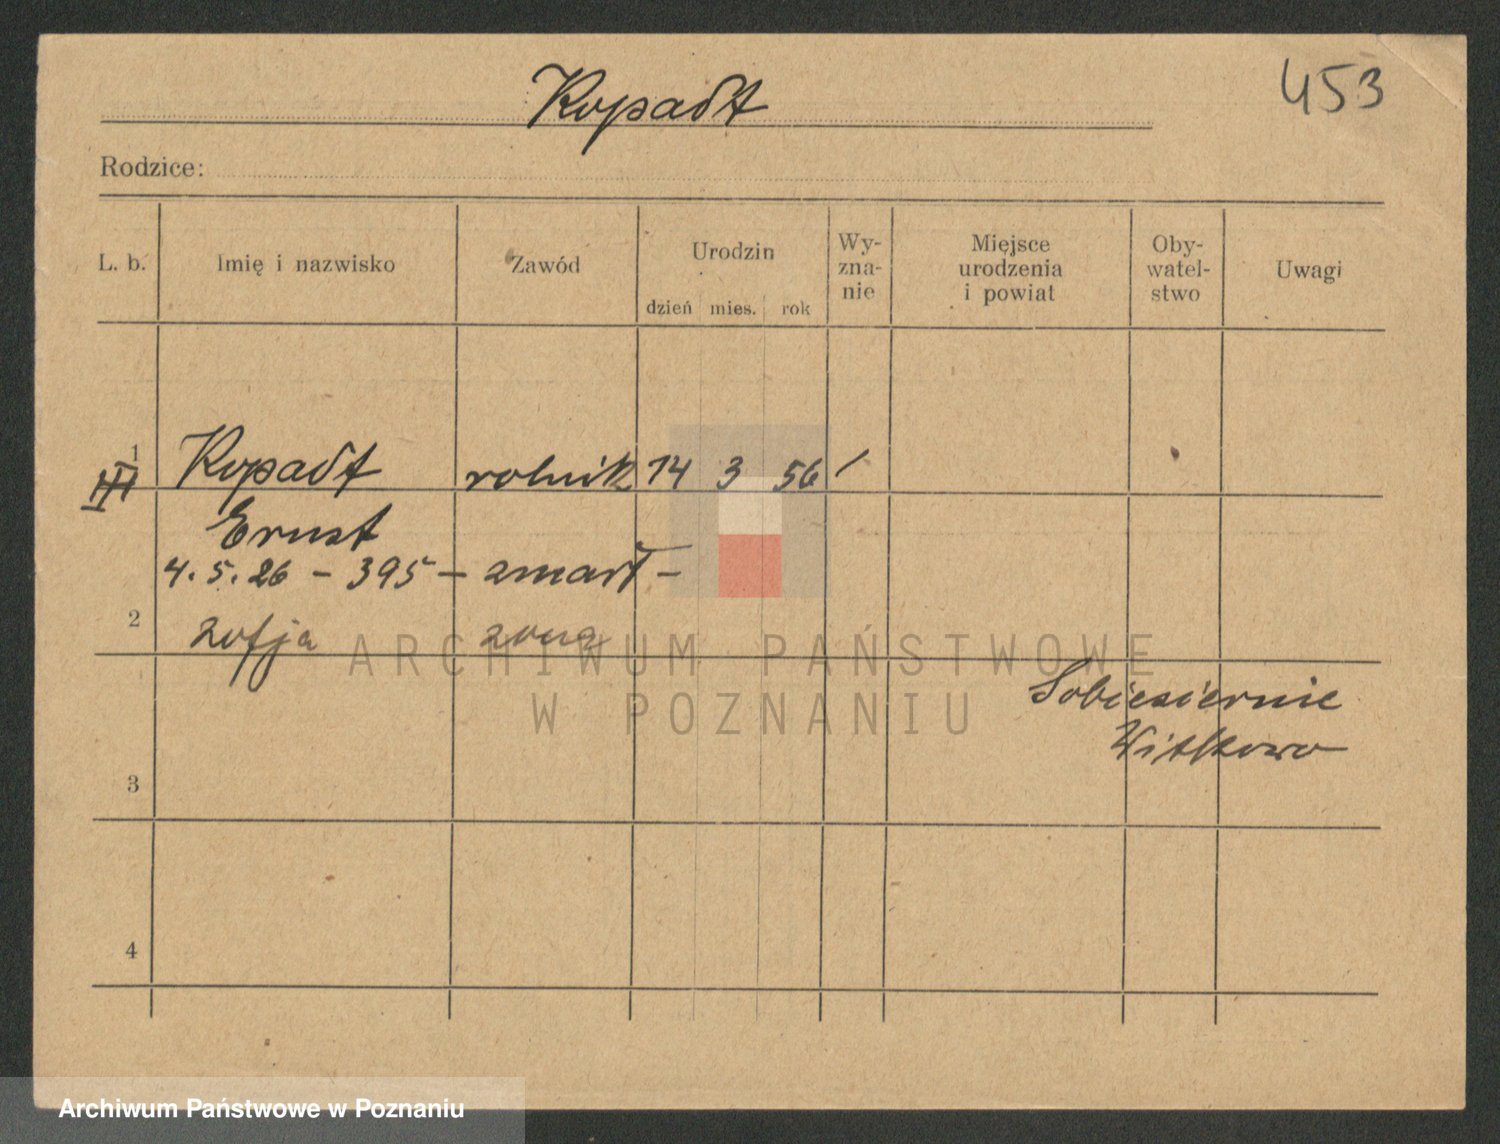 Kopadt
453
Rodzice:
L. b.
Imię i nazwisko
Zawód
Urodzin
dzień mies. rok
Wy-
zna-
nie
Miejsce
urodzenia
i powiat
Oby-
watel-
stwo
Uwagi
1
III
Kopadt rolnik 14 3 56 /
Ernst
4. 5. 26 - 395 - zmarł -
2
Zofja żona
ARCHIWUM PAŃSTWOWE
W POZNANIU
Sobiesiernie
Witkowo
3
4
Archiwum Państwowe w Poznaniu